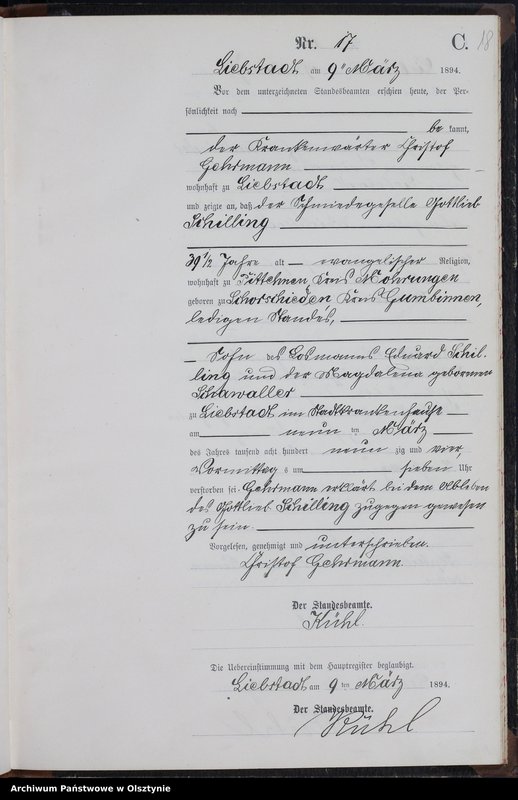 Nr. 17
C. 18
Liebstadt am 9ten März 1894.
Vor dem unterzeichneten Standesbeamten erschien heute, der Per-
sönlichkeit nach
bekannt,
der Krankenwärter Christof
Gehrmann
wohnhaft zu Liebstadt
und zeigte an, daß der Schmiedegeselle Gottlieb
Schilling
39 1/2 Jahre alt evangelischer Religion,
wohnhaft zu Tittehnen Kreis Mohrungen
geboren zu Schorschieden Kreis Gumbinnen,
ledigen Standes,
Sohn des Losmanns Eduard Schil-
ling und der Magdalena geborenen
Schawaller
zu Liebstadt im Stadtkrankenhause
am neun ten März
des Jahres tausend acht hundert neun zig und vier,
Vormittag s um sieben Uhr
verstorben sei. Gehrmann erklärt bei dem Ableben
des Gottlieb Schilling zugegen gewesen
zu sein.
Vorgelesen, genehmigt und unterschrieben.
Christof Gehrmann.
Der Standesbeamte.
Kühl.
Die Uebereinstimmung mit dem Hauptregister beglaubigt.
Liebstadt am 9 ten März 1894.
Der Standesbeamte.
Kühl
Archiwum Państwowe w Olsztynie